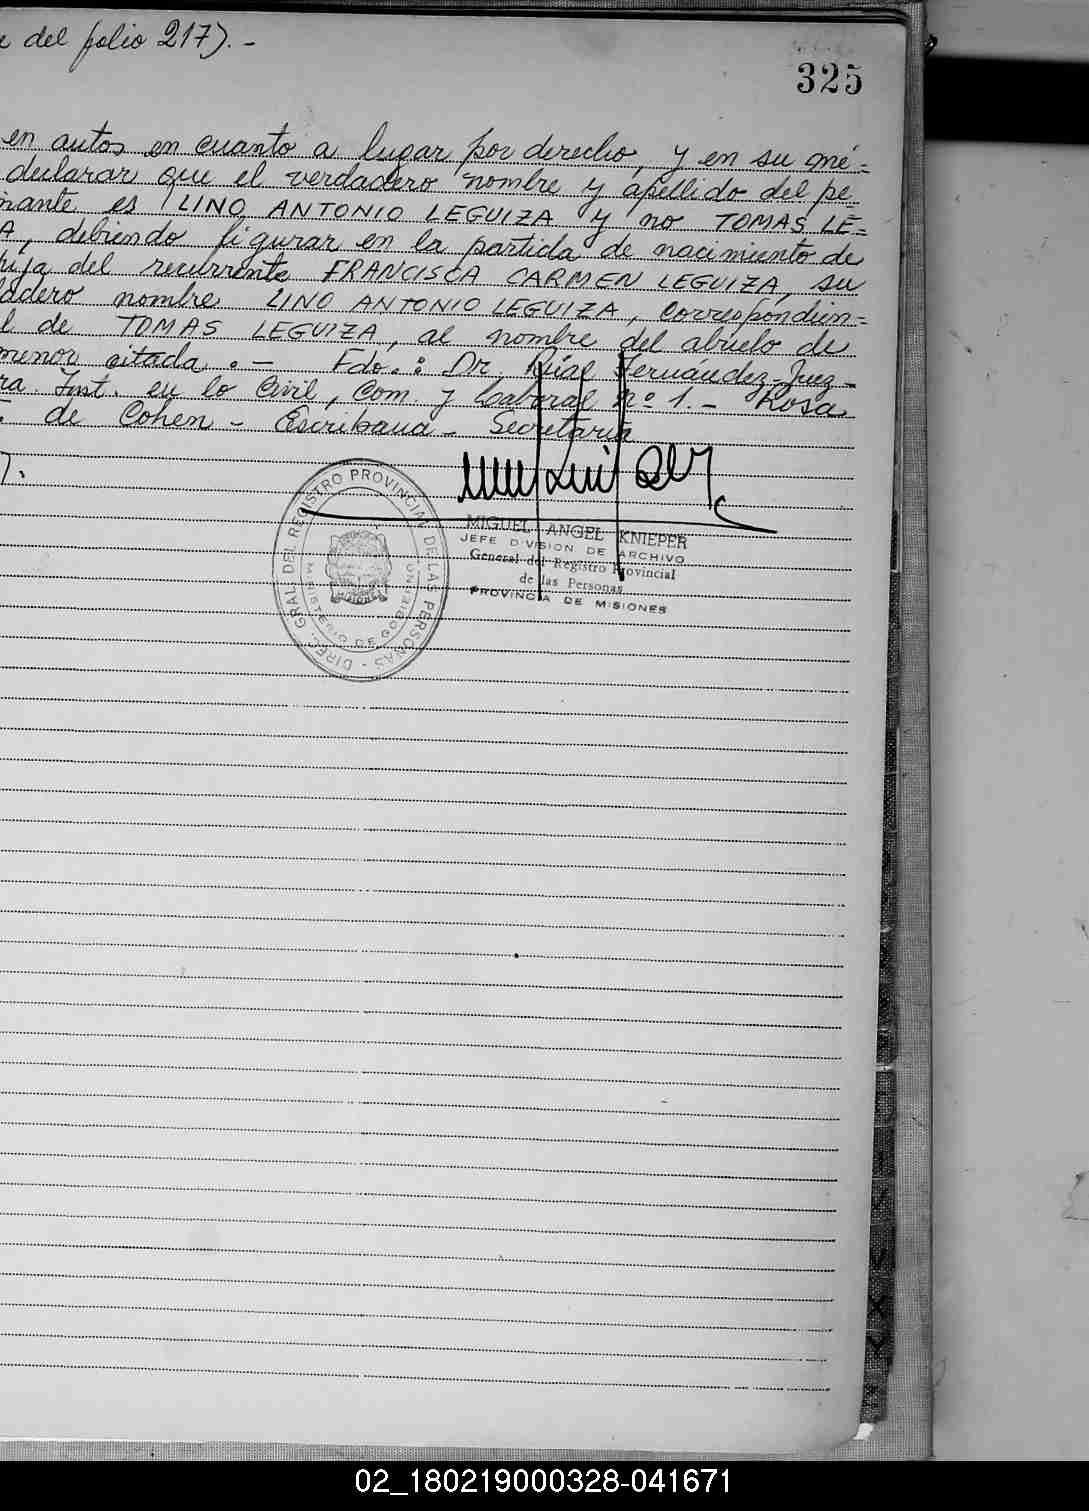 del folio 217).-
325
en autos en cuanto a lugar por derecho, y en su mé=
declarar que el verdadero nombre y apellido del pe
nante es LINO ANTONIO LEGUIZA y no TOMAS LE=
A, debiendo figurar en la partida de nacimiento de
hija del recurrente FRANCISCA CARMEN LEGUIZA, su
dadero nombre LINO ANTONIO LEGUIZA, correspondien=
l de TOMAS LEGUIZA, al nombre del abuelo de
menor citada.- Fdo.: Dr. Fernández-Juez-
ra. Inst. en lo Civil, Com. y Laboral nº 1.- Rosa
de Cohen - Escribana - Secretaria
).
DIREC. GRAL. DEL REGISTRO PROVINCIAL DE LAS PERSONAS -
MINISTERIO DE GOBIERNO
MISIONES
MIGUEL ANGEL KNIEPER
JEFE DIVISION DE ARCHIVO
General del Registro Provincial
de las Personas
PROVINCIA DE MISIONES
02_180219000328-041671